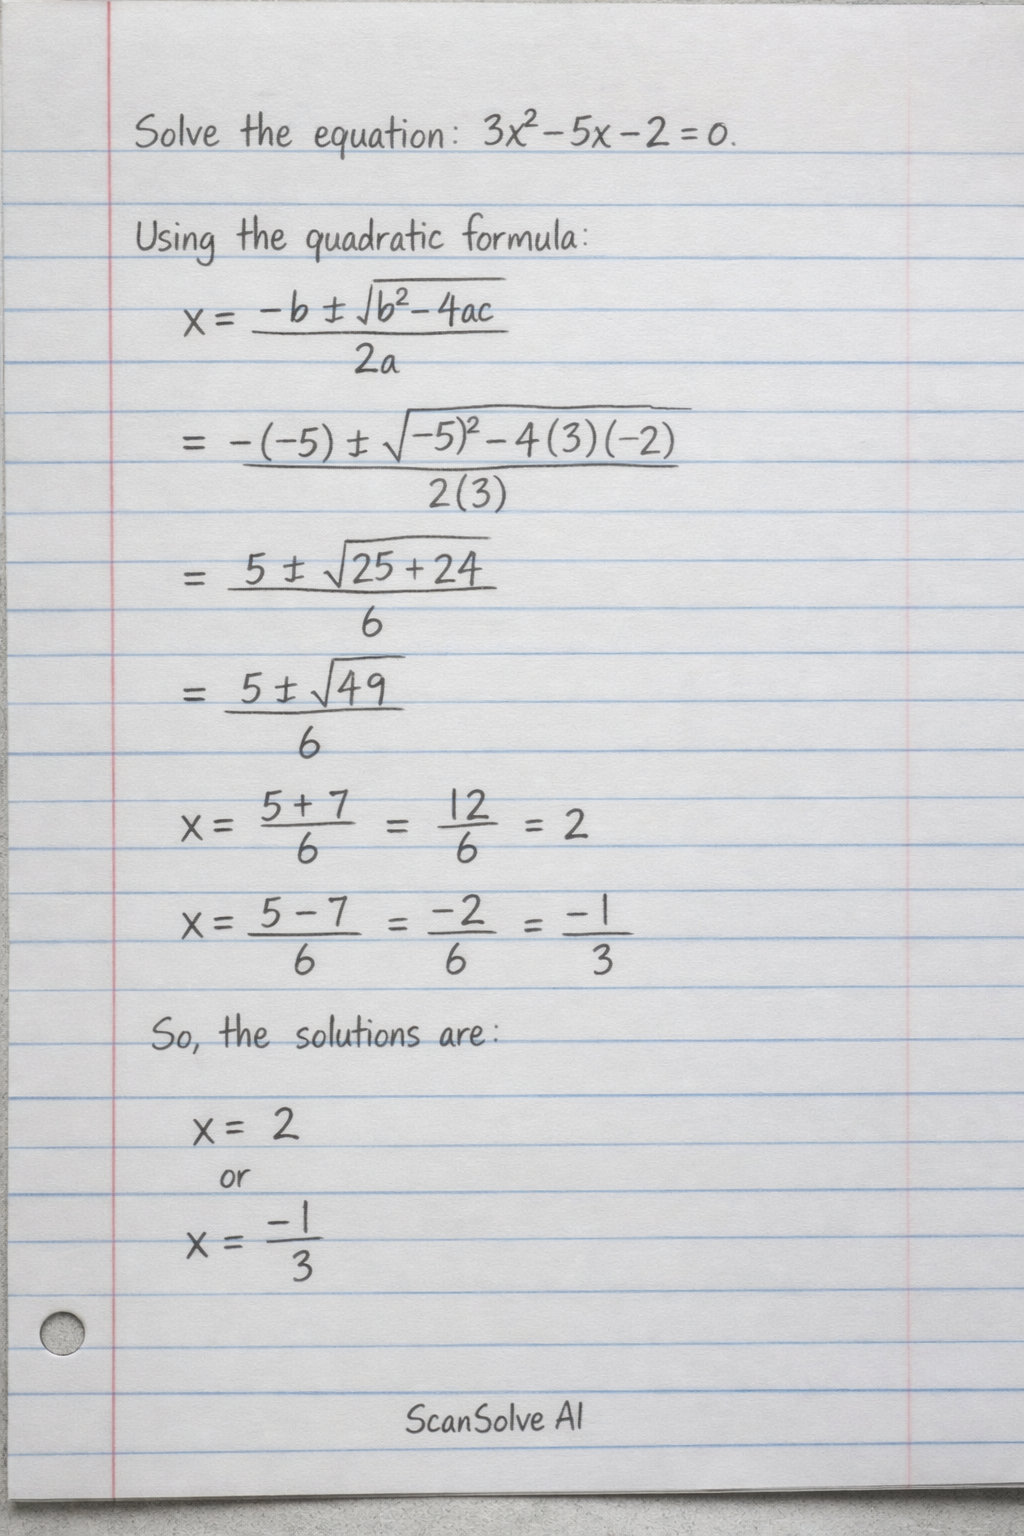 Solve the equation: 3x² − 5x − 2 = 0.
Using the quadratic formula:
x = (−b ± √(b² − 4ac)) / 2a
= (−(−5) ± √(−5)² − 4(3)(−2)) / 2(3)
= (5 ± √(25 + 24)) / 6
= (5 ± √49) / 6
x = (5 + 7)/6 = 12/6 = 2
x = (5 − 7)/6 = −2/6 = −1/3
So, the solutions are:
x = 2
or
x = −1/3
ScanSolve AI